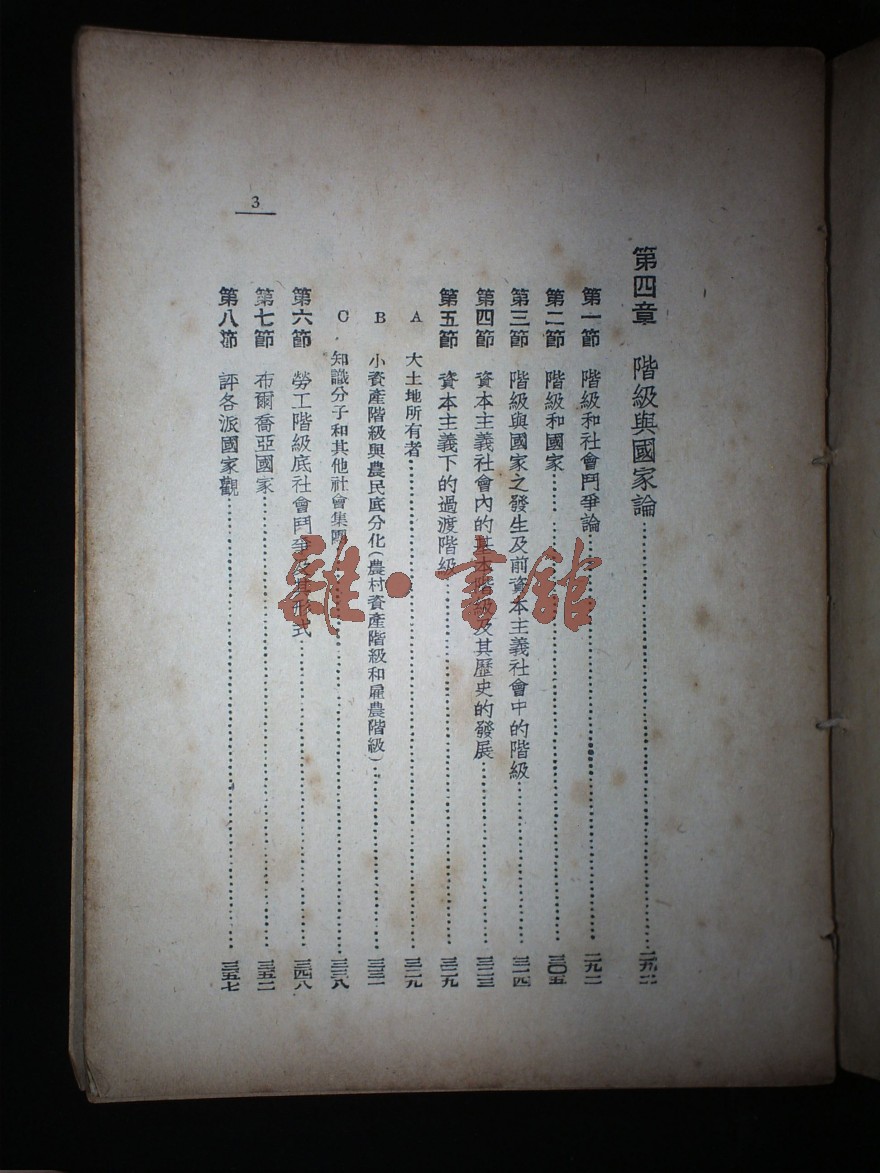 第四章　階級與國家論……二九二
第一節　階級和社會鬥爭論……二九二
第二節　階級和國家……三〇五
第三節　階級與國家之發生及前資本主義社會中的階級……三一四
第四節　資本主義社會內的基本階級及其歷史的發展……三二三
第五節　資本主義下的過渡階級……三二九
A　大土地所有者……三二九
B　小資產階級與農民底分化(農村資產階級和雇農階級)……三三一
C　知識分子和其他社會集團……三三八
第六節　勞工階級底社會鬥爭及其形式……三四八
第七節　布爾喬亞國家……三五二
第八節　評各派國家觀……三五七
3
雜·書館